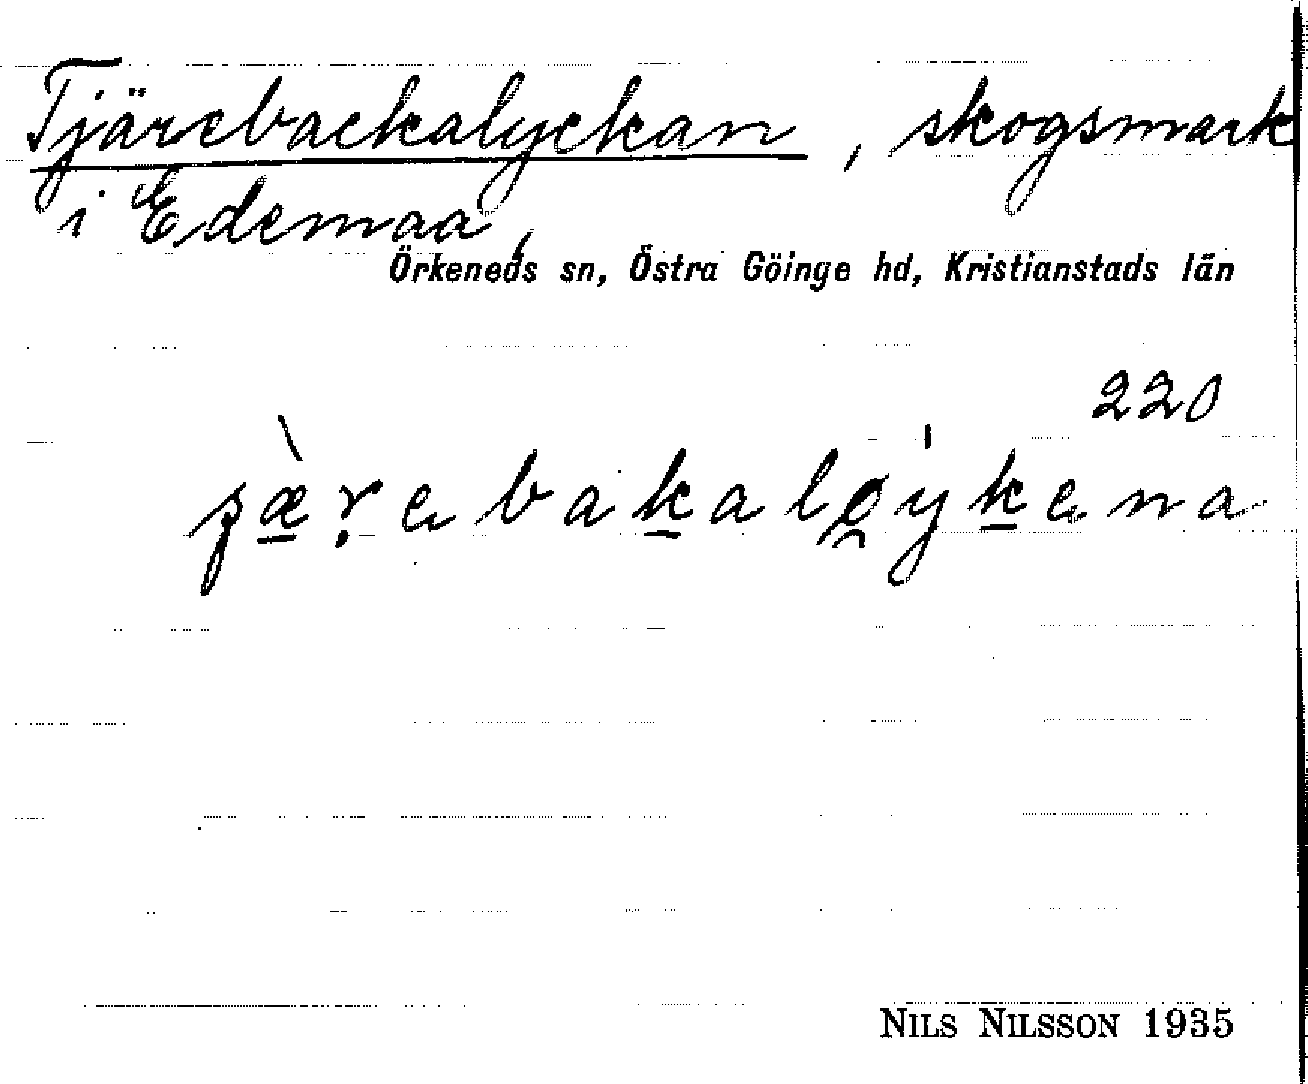 Tjärebackalyckan, skogsmark
i Edemaa,
Örkeneds sn, Östra Göinge hd, Kristianstads län
220
NILS NILSSON 1935